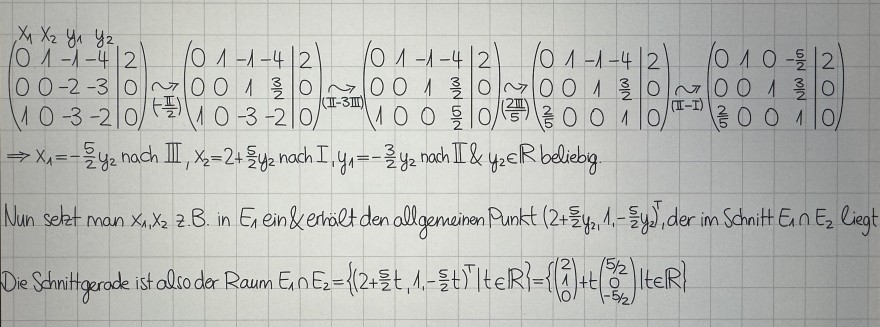 x₁ x₂ y₁ y₂
(0 1 -1 -4 | 2) (0 1 -1 -4 | 2) (0 1 -1 -4 | 2) (0 1 -1 -4 | 2) (0 1 0 -5/2 | 2)
(0 0 -2 -3 | 0) ⤳ (-II/2) (0 0 1 3/2 | 0) ⤳ (II-3III) (0 0 1 3/2 | 0) ⤳ (2III/5) (0 0 1 3/2 | 0) ⤳ (II-I) (0 0 1 3/2 | 0)
(1 0 -3 -2 | 0) (1 0 -3 -2 | 0) (1 0 0 5/2 | 0) (2/5 0 0 1 | 0) (2/5 0 0 1 | 0)
⇒ x₁=-5/2y₂ nach III, x₂=2+5/2y₂ nach I, y₁=-3/2y₂ nach II & y₂∈ℝ beliebig.
Nun setzt man x₁,x₂ z.B. in E₁ ein & erhält den allgemeinen Punkt (2+5/2y₂,1,-5/2y₂)ᵀ, der im Schnitt E₁∩E₂ liegt
Die Schnittgerade ist also der Raum E₁∩E₂={(2+5/2t,1,-5/2t)ᵀ|t∈ℝ}={(2 1 0)+t(5/2 0 -5/2)|t∈ℝ}